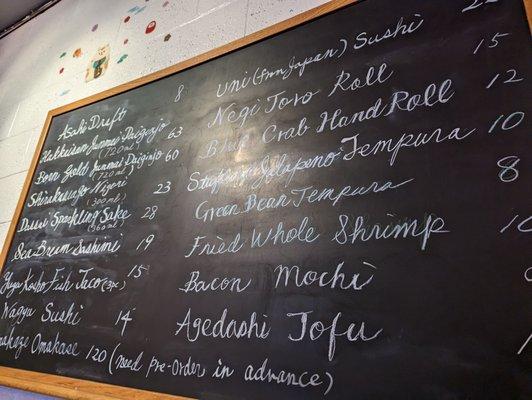 Asahi Draft 8
Hakkaisan Junmai Daiginjo 63
(720 mL)
Born Gold Junmai Daiginjo 60
(720 mL)
Shirakawago Nigori 23
(300 mL)
Dassai Sparkling Sake 28
(360 mL)
Sea Bream Sashimi 19
Yuzu Kosho Fish Taco (3pc) 15
Wagyu Sushi 14
Omakase 120 (need pre-order in advance)
Uni (from Japan) Sushi
Negi Toro Roll 15
Blue Crab Hand Roll 12
Jalapeno Tempura 10
Green Bean Tempura 8
Fried Whole Shrimp
Bacon Mochi
Agedashi Tofu